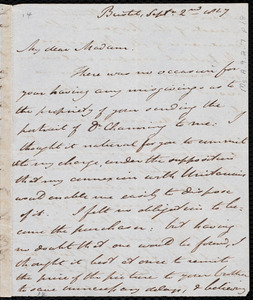 Bristol, Sept. 2nd 1847
My dear Madam,
There was no occasion for
your having any misgivings as to
the propriety of your sending the
portrait of Dr Channing to me. I
thought it natural for you to commit
it to my charge, under the supposition
that my connexion with Unitarians
would enable me easily to dispose
of it. I felt no obligation to be-
come the purchaser; but having
no doubt that one would be found, I
thought it best at once to remit
the price of the picture to your brother
to save unnecessary delays, & believing